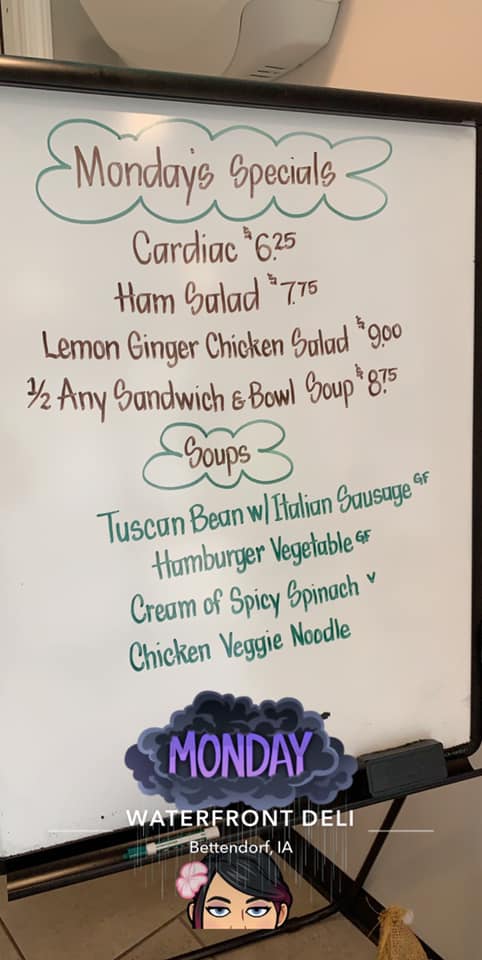 Monday's Specials
Cardiac $6.25
Ham Salad $7.75
Lemon Ginger Chicken Salad $9.00
1/2 Any Sandwich & Bowl Soup $8.75
Soups
Tuscan Bean w/ Italian Sausage GF
Hamburger Vegetable GF
Cream of Spicy Spinach V
Chicken Veggie Noodle
MONDAY
WATERFRONT DELI
Bettendorf, IA